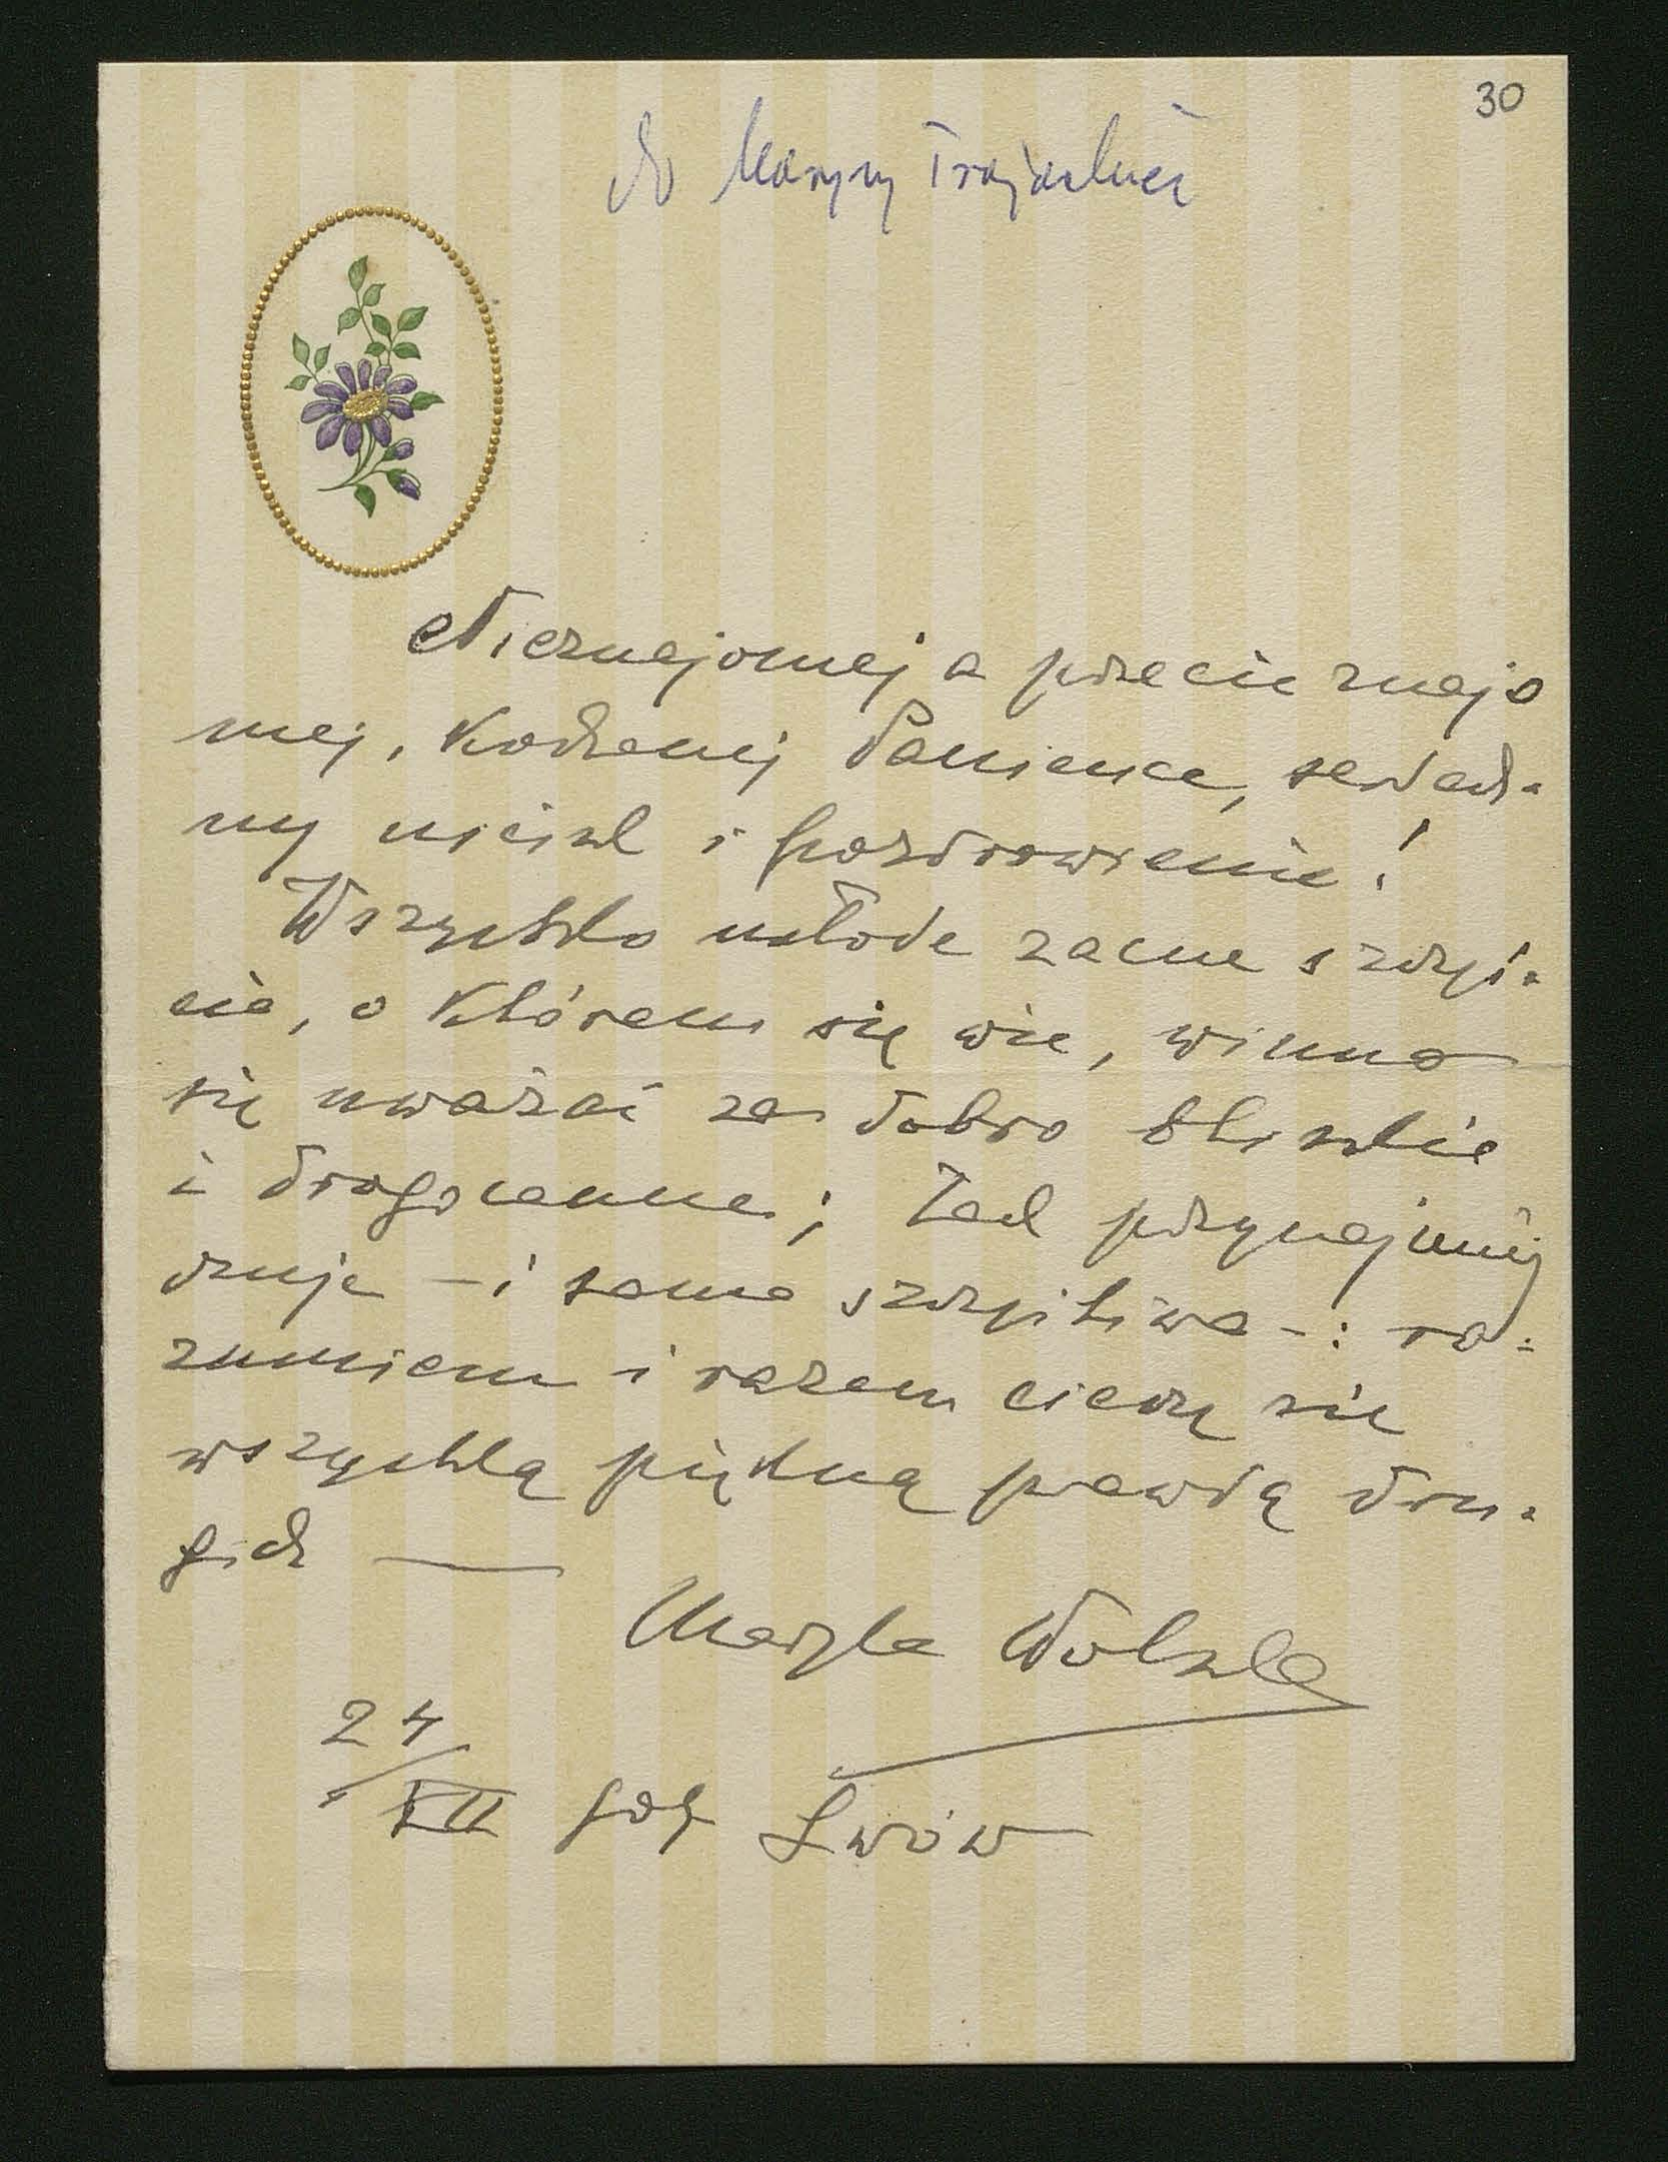 30
do Maryny
Nieznajomej a przecie znajo
mej, Kochanej Panience, serdecz-
ny uścisk i pozdrowienie!
Wszystko młode zacne szczę-
cie, o którem się wie, winno
się uważać za dobro bliskie
i drogocenne; tak przynajmniej
czuję – i sama szczęśliwa –: ro-
zumiem i razem cieszę się
wszystką piękną prawdą dru-
gich —
Maryla Wolska
24
XII 909 Lwów